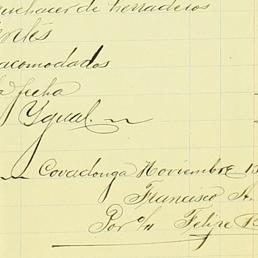 quehacer de herraderos
acomodados
la fecha
Ygual.
Covadonga Noviembre 15
Francisco A.
Por o/n Felipe